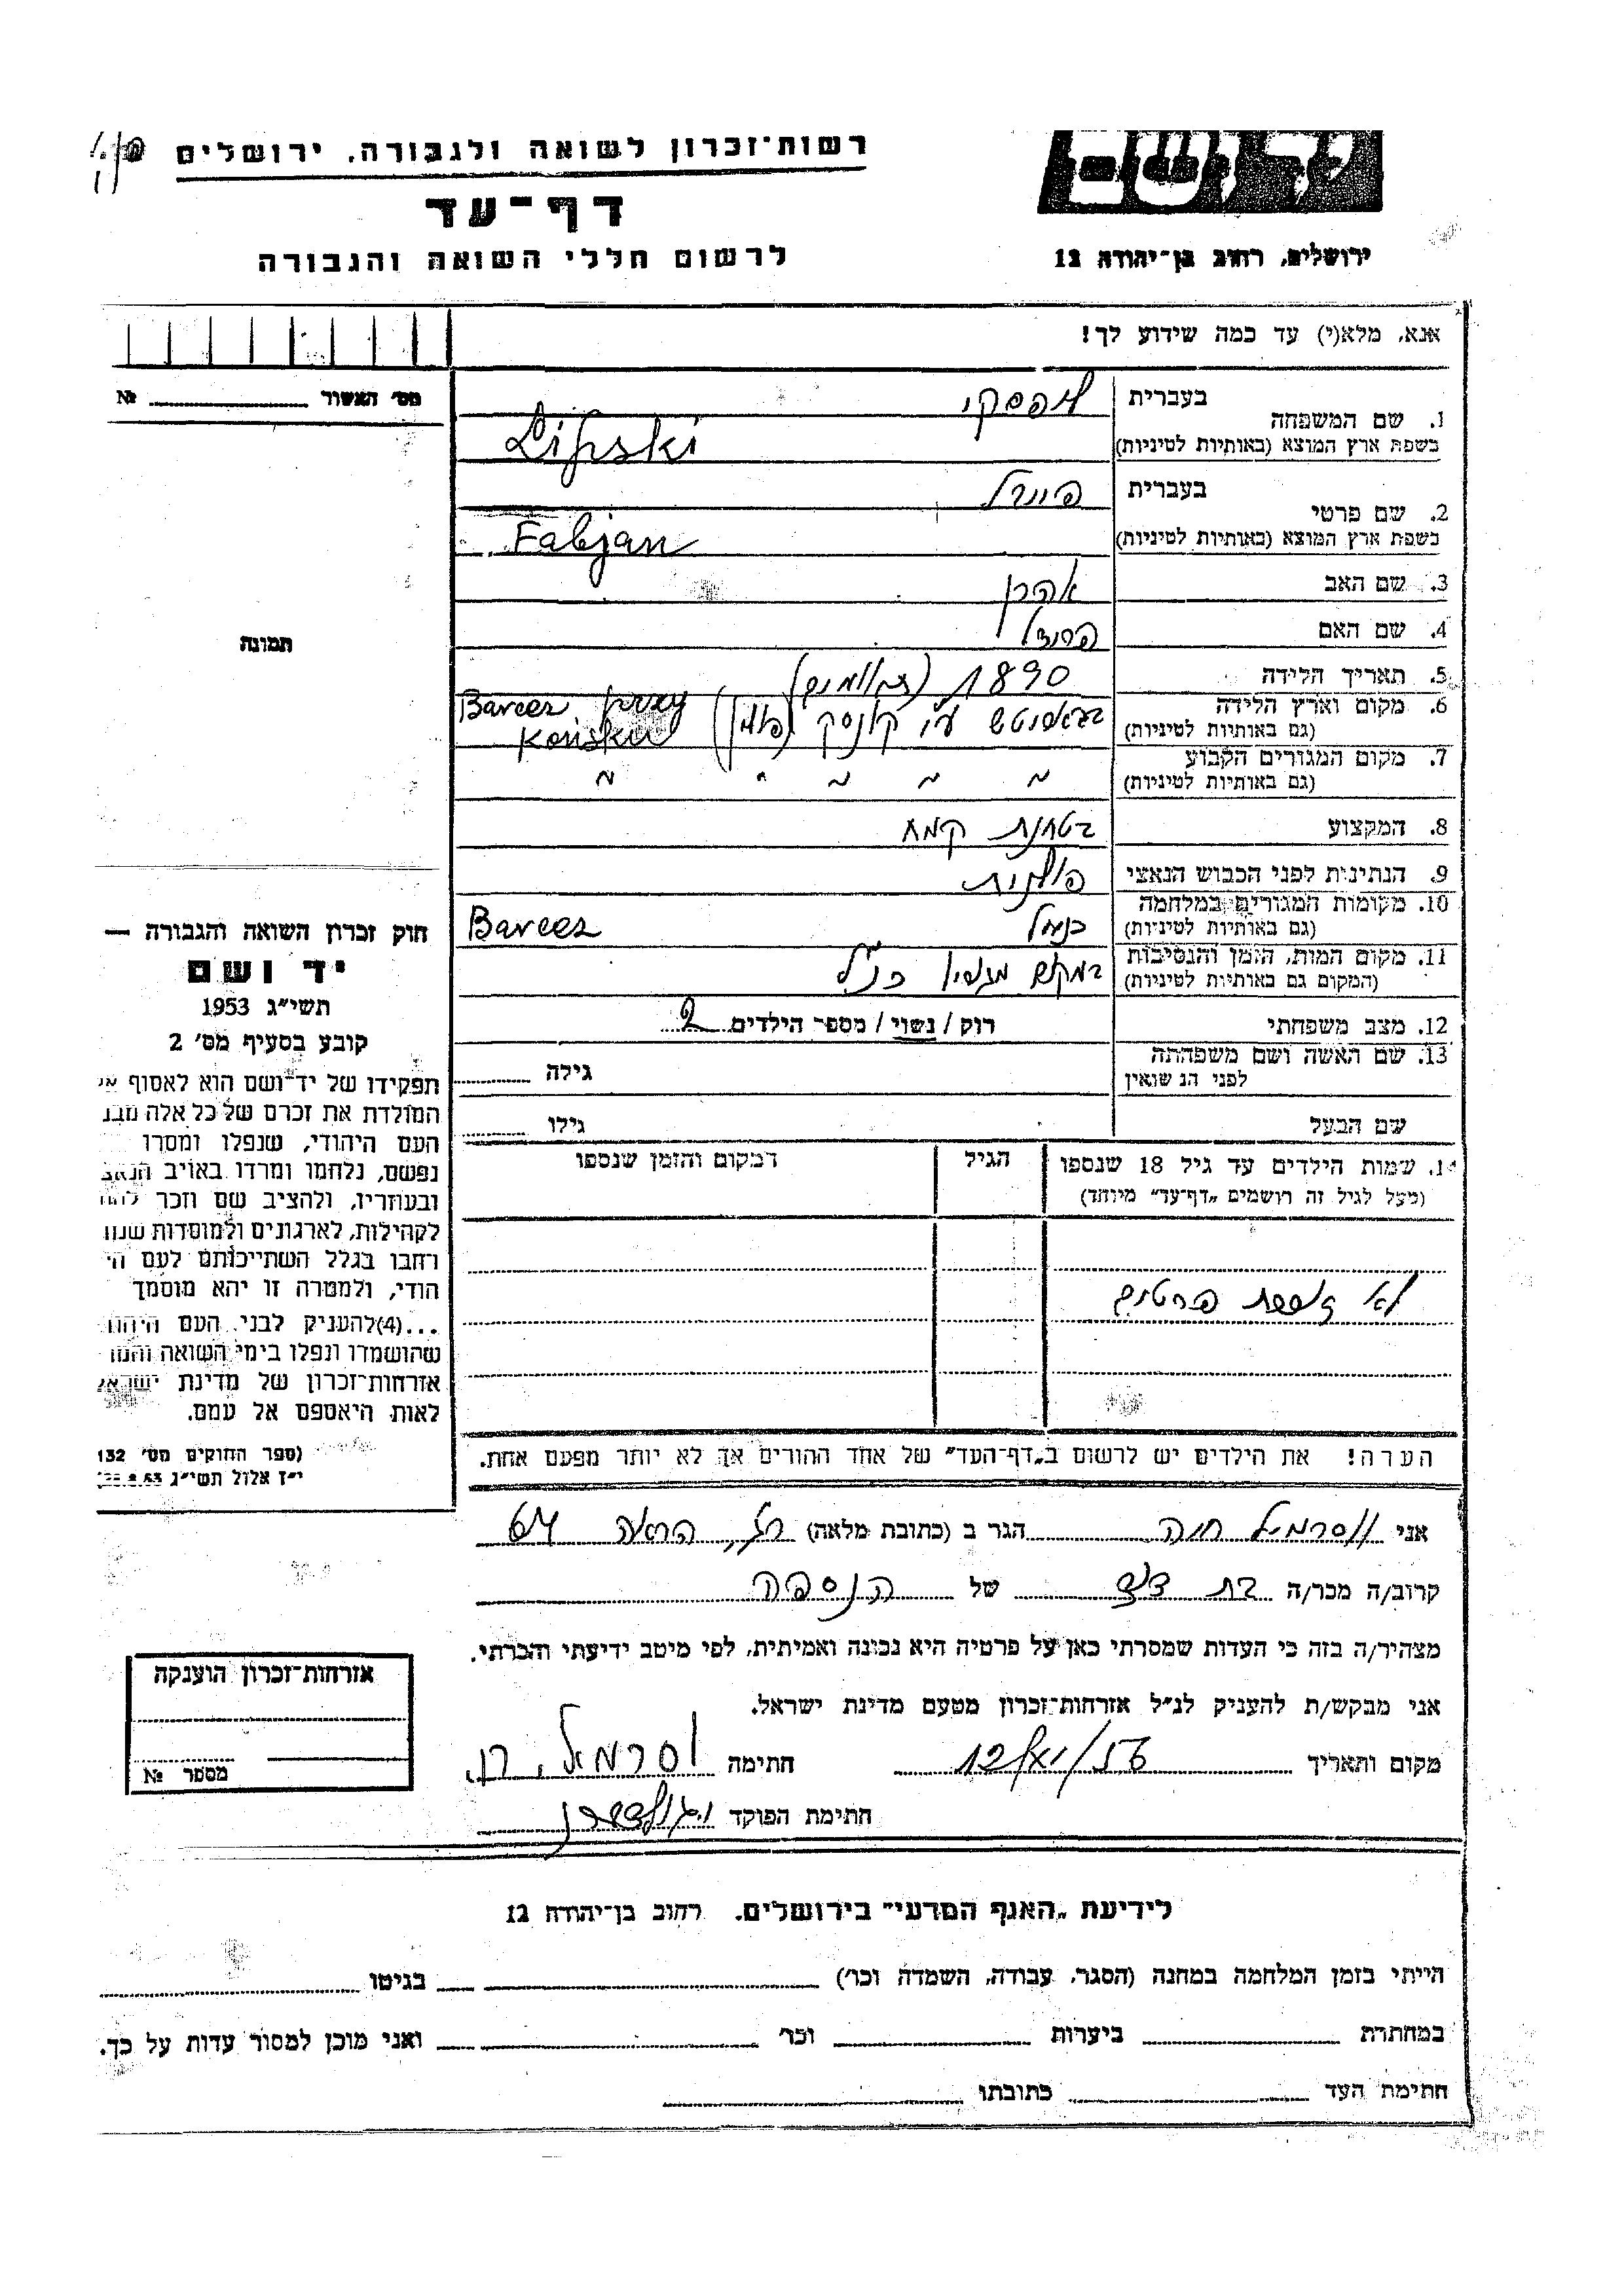 רשות־זכרון לשואה ולגבורה, ירושלים
דף־עד
לרשום חללי השואה והגבורה
ירושלים, רחוב בן־יהודה 12
אנא, מלא(י) עד כמה שידוע לך!
מס׳ האשור № 
תמונה
1. שם המשפחה בעברית ליפסקי
בשפת ארץ המוצא (באותיות לטיניות) Lipski
2. שם פרטי בעברית
בשפת ארץ המוצא (באותיות לטיניות) Fabjan
3. שם האב אהרן
4. שם האם
5. תאריך הלידה 1890
6. מקום וארץ הלידה (גם באותיות לטיניות) ע״י קונסק (פולין) Barcez przy Końsku
7. מקום המגורים הקבוע (גם באותיות לטיניות) " " " " "
8. המקצוע בטחנת קמח
9. הנתינות לפני הכבוש הנאצי פולנית
10. מקומות המגורים במלחמה (גם באותיות לטיניות) כנ״ל Barcez
11. מקום המות, הזמן והנסיבות (המקום גם באותיות לטיניות) במקום כנ״ל
12. מצב משפחתי רוק / נשוי / מספר הילדים 2
13. שם האשה ושם משפחתה לפני הנשואין גילה
שם הבעל גילו
14. שמות הילדים עד גיל 18 שנספו (מעל לגיל זה רושמים „דף־עד״ מיוחד) הגיל המקום והזמן שנספו
לא פרטים
הערה! את הילדים יש לרשום ב„דף־העד״ של אחד ההורים אך לא יותר מפעם אחת.
חוק זכרון השואה והגבורה —
יד ושם
תשי״ג 1953
קובע בסעיף מס׳ 2
תפקידו של יד־ושם הוא לאסוף
המולדת את זכרם של כל אלה
העם היהודי, שנפלו ומסרו
נפשם, נלחמו ומרדו באויב
ובעוזריו, ולהציב שם וזכר
לקהילות, לארגונים ולמוסדות
חרבו בגלל השתייכותם לעם
הודי, ולמטרה זו יהא מוסמך
...(4)להעניק לבני העם
שהושמדו ונפלו בימי השואה
אזרחות־זכרון של מדינת
לאות היאספם אל עמם.
(ספר החוקים מס׳ 132
י״ז אלול תשי״ג
אני חוה הגר ב (כתובת מלאה)
קרוב/ה מכר/ה בת דוד של הנספה
מצהיר/ה בזה כי העדות שמסרתי כאן על פרטיה היא נכונה ואמיתית, לפי מיטב ידיעתי והכרתי.
אני מבקש/ת להעניק לנ״ל אזרחות־זכרון מטעם מדינת ישראל.
מקום ותאריך חתימה
חתימת הפוקד
אזרחות־זכרון הוענקה
מספר №
לידיעת „האגף המדעי״ בירושלים, רחוב בן־יהודה 12
הייתי בזמן המלחמה במחנה (הסגר, עבודה, השמדה וכו׳) בגיטו
במחתרת ביערות וכו׳ ואני מוכן למסור עדות על כך.
חתימת העד כתובתו